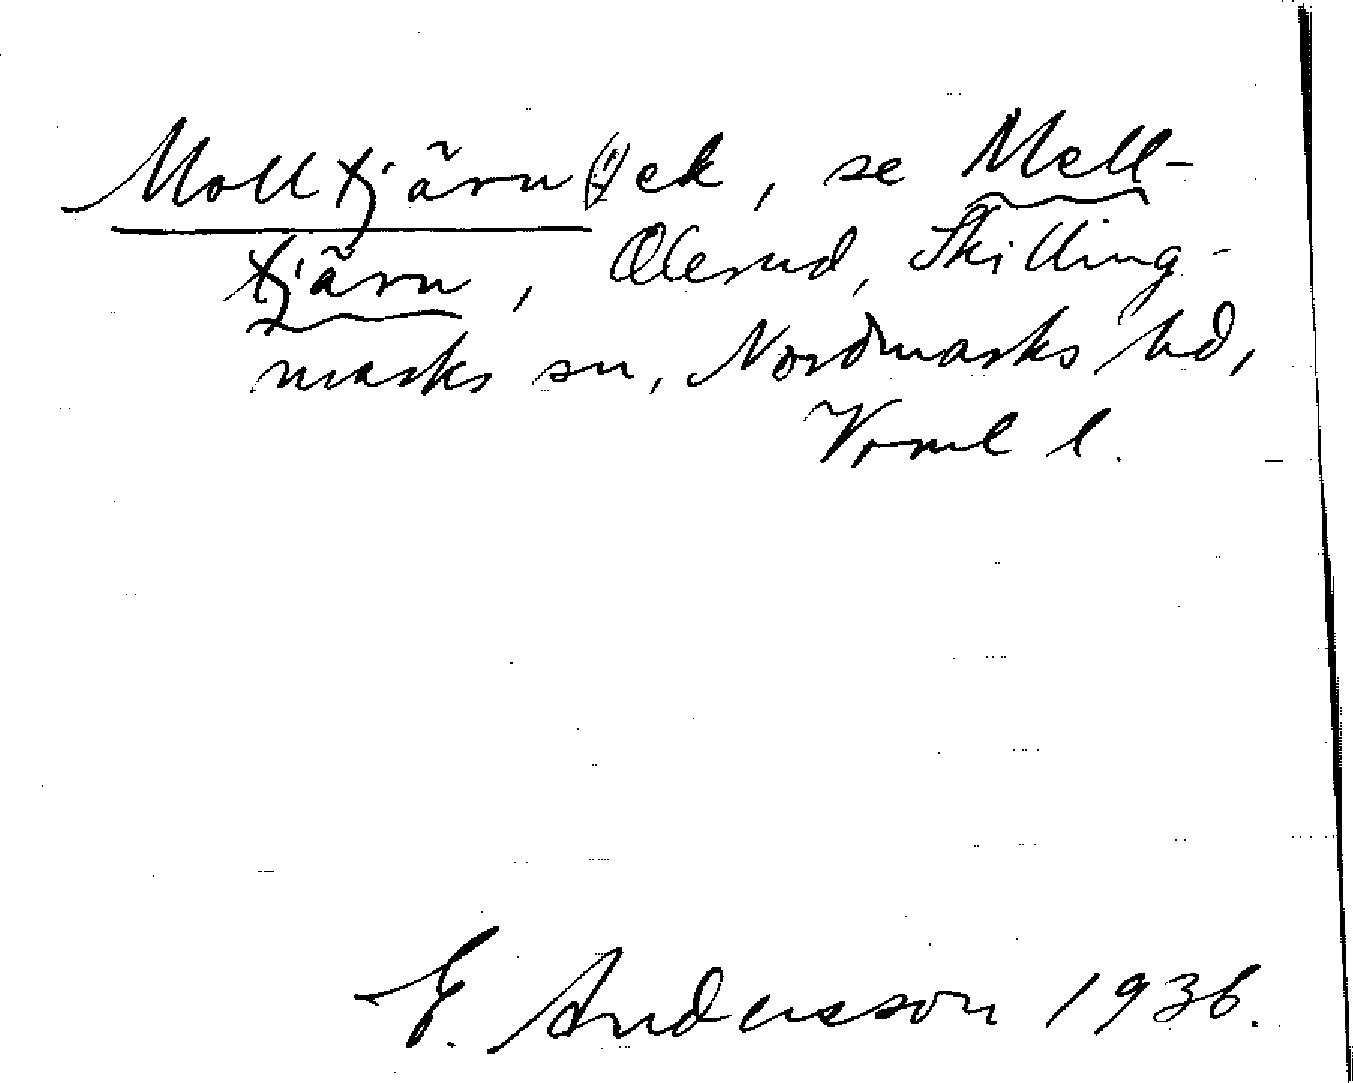 Molltjärn(:)ek, se Mell-
tjärn, Olerud, Skilling-
marks sn, Nordmarks hd,
Vrml l.
E. Andersson 1936.